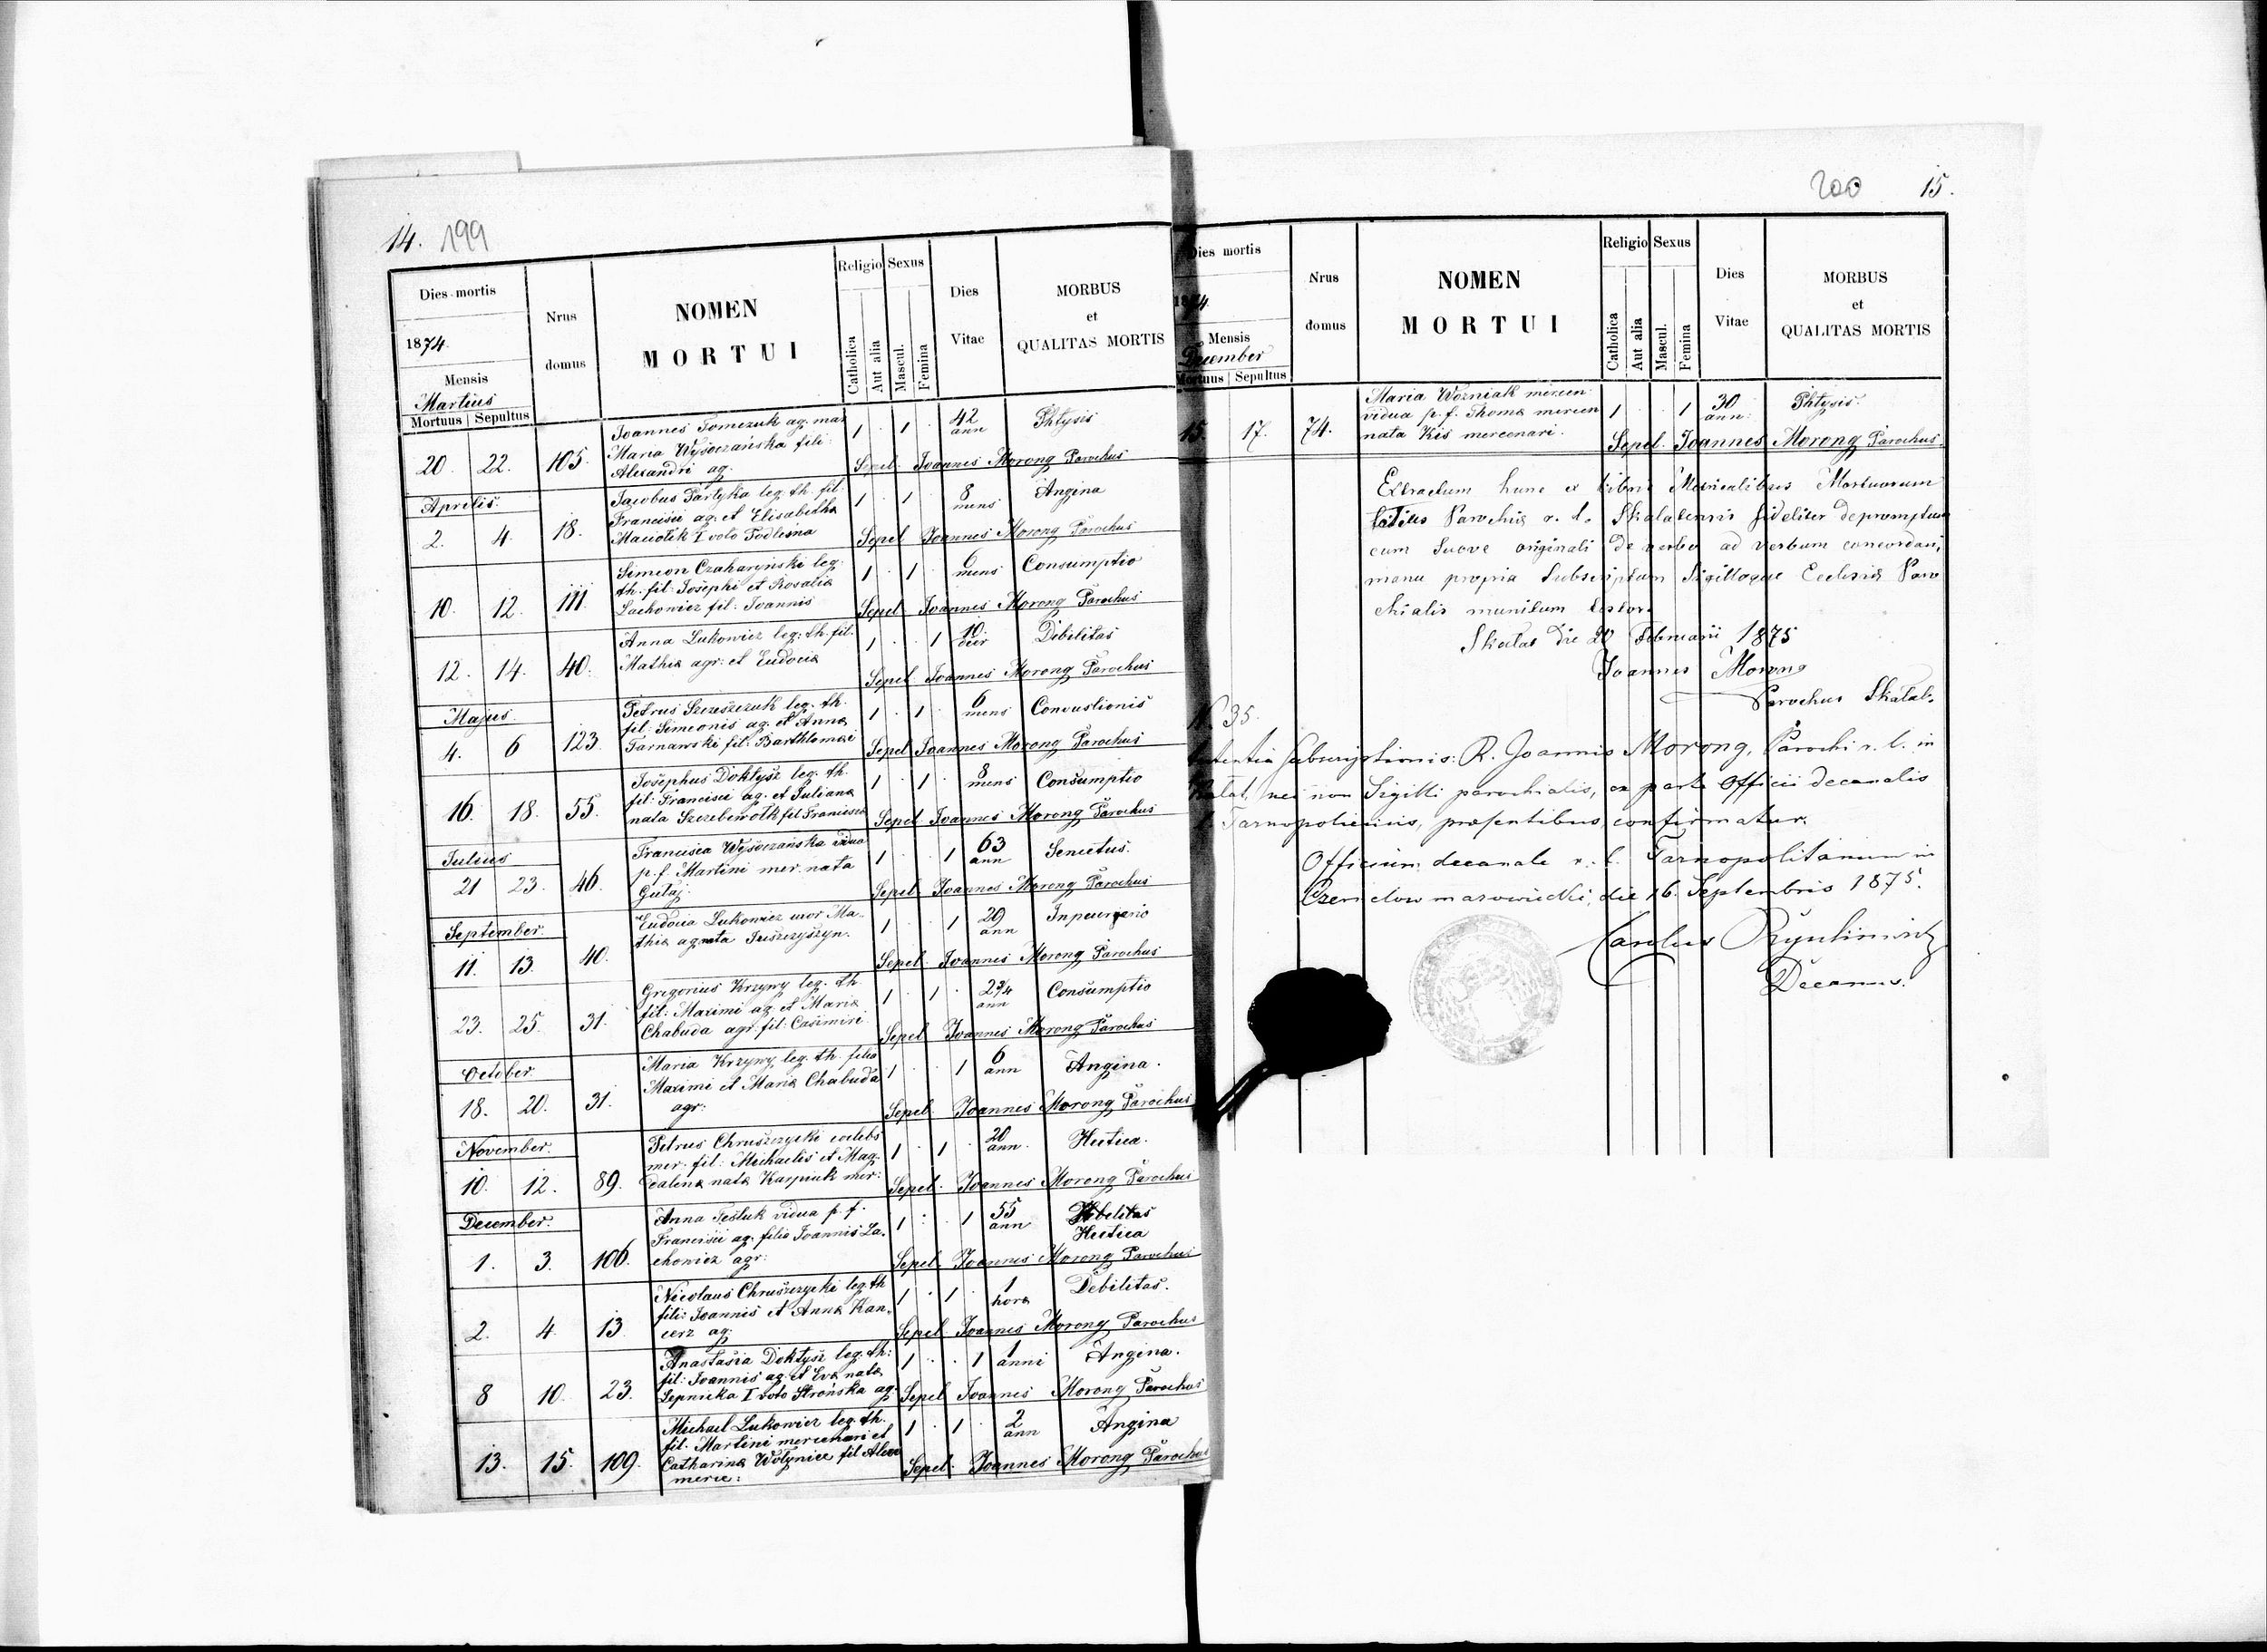 14. 199
Dies mortis
1874.
Mensis
Martius
Mortuus | Sepultus
Nrus
domus
NOMEN
MORTUI
Religio
Catholica
Aut alia
Sexus
Mascul.
Femina
Dies
Vitae
MORBUS
et
QUALITAS MORTIS
Joannes Tomczuk ag. mar
Maria Wysoczańska fili:
Alexandri ag.
20. 22. 105. 1 1 42 ann Phtysis
Sepel. Joannes Morong Parochus
Aprilis.
Jacobus Partyka leg. th. fil.
Francisci ag: et Elisabetha
Maciołek I voto Podleśna
2. 4. 18. 1 1 8 mens Angina
Sepel Joannes Morong Parochus
Simeon Czaharyński leg.
th. fil: Josephi et Rosalia
Lachowicz fil: Joannis
10. 12. 111. 1 1 6 mens Consumptio
Sepel Joannes Morong Parochus
Anna Lukowicz leg: th. fil.
Mathia agr: et Eudocia
12. 14. 40. 1 1 10. dier Debilitas
Sepel Joannes Morong Parochus
Majus.
Petrus Szereszczuk leg. th.
fil: Simeonis ag. et Anna
Tarnawski fil: Barthlomæi
4. 6 123. 1 1 6 mens
Sepel Joannes Morong Parochus
Josephus Doktysz leg. th.
fil: Francisci ag. et Juliana
nata fil Francisci
16. 18. 55. 1 1 8 mens Consumptio
Sepel Joannes Morong Parochus
Julius
Francisca Wysoczańska vidua
p. f. Martini mer. nata
Gutaj.
21 23. 46. 1 1 63 ann Senectus.
Sepel Joannes Morong Parochus
September.
Eudocia Lukowicz uxor Ma-
thia ag nata
11. 13. 40. 1 1 29 ann
Sepel. Joannes Morong Parochus
Gregorius Krzywy leg. th
fil: Maximi ag. et Maria
Chabuda agr. fil: Casimiri
23. 25. 31. 1 1 ann Consumptio
Sepel Joannes Morong Parochus
October.
Maria Krzywy leg. th. filia
Maximi et Maria Chabuda
agr:
18. 20. 31. 1 1 6 ann Angina.
Sepel. Joannes Morong Parochus
November.
Petrus Chruszczycki coelebs
mer. fil: Michaelis et Mag-
dalena nata Karpiuk mer:
10. 12. 89. 1 1 20 ann. Hectica.
Sepel. Joannes Morong Parochus
December.
Anna Tesluk vidua p. f.
Francisci ag. filia Joannis La-
chowicz agr:
1. 3. 106. 1 1 55 ann Debilitas
Hectica
Sepel Joannes Morong Parochus
Nicolaus Chruszczycki leg. th
fili: Joannis et Anna Kan-
cerz ag:
2. 4. 13. 1 1 1 hora Debilitas.
Sepel Joannes Morong Parochus
Anastasia Doktysz leg. th:
fil: Joannis ag. et Eva nata
Sepnicka I voto Strońska ag.
8 10. 23. 1 1 1 anni Angina.
Sepel Joannes Morong Parochus
Michael Lukowicz leg. th.
fil. Martini mercenari et
Catharina Wołyniec fil Alexa
merce:
13. 15. 109. 1 1 2 ann Angina
Sepel. Joannes Morong Parochus
200 15.
Dies mortis
1874.
Mensis
December
Mortuus | Sepultus
Nrus
domus
NOMEN
MORTUI
Religio
Catholica
Aut alia
Sexus
Mascul.
Femina
Dies
Vitae
MORBUS
et
QUALITAS MORTIS
Maria Woźniak mercen
vidua p. f. Thoma mercen
nata Kis mercenari.
15. 17. 74. 1 1 30 ann: Phtysis.
Sepel. Joannes Morong Parochus.
Extractum hunc ex libris Metricalibus Mortuorum
Parochia r. l. Skalatensis fideliter depromptum
cum suove originali de verbo ad verbum concordari,
manu propria subscriptum Sigilloque Ecclesia Paro
chialis munitum testor.
Skalat die 20 Februarii 1875
Joannes Morong
Parochus Skalat.
N. 35.
Subscriptionis: R. Joannis Morong, Parochi r. l. in
Skalat, nec non Sigilli parochialis, ex parte Officii decanalis
Tarnopoliensis, præsentibus confirmatur.
Officium decanale r. l. Tarnopolitanum in
Czernelow mazowiecki, die 16. Septembris 1875.
Carolus
Decanus.